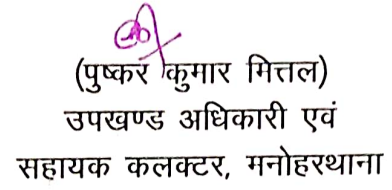 (पुष्कर कुमार मित्तल)
उपखण्ड अधिकारी एवं
सहायक कलक्टर, मनोहरथाना